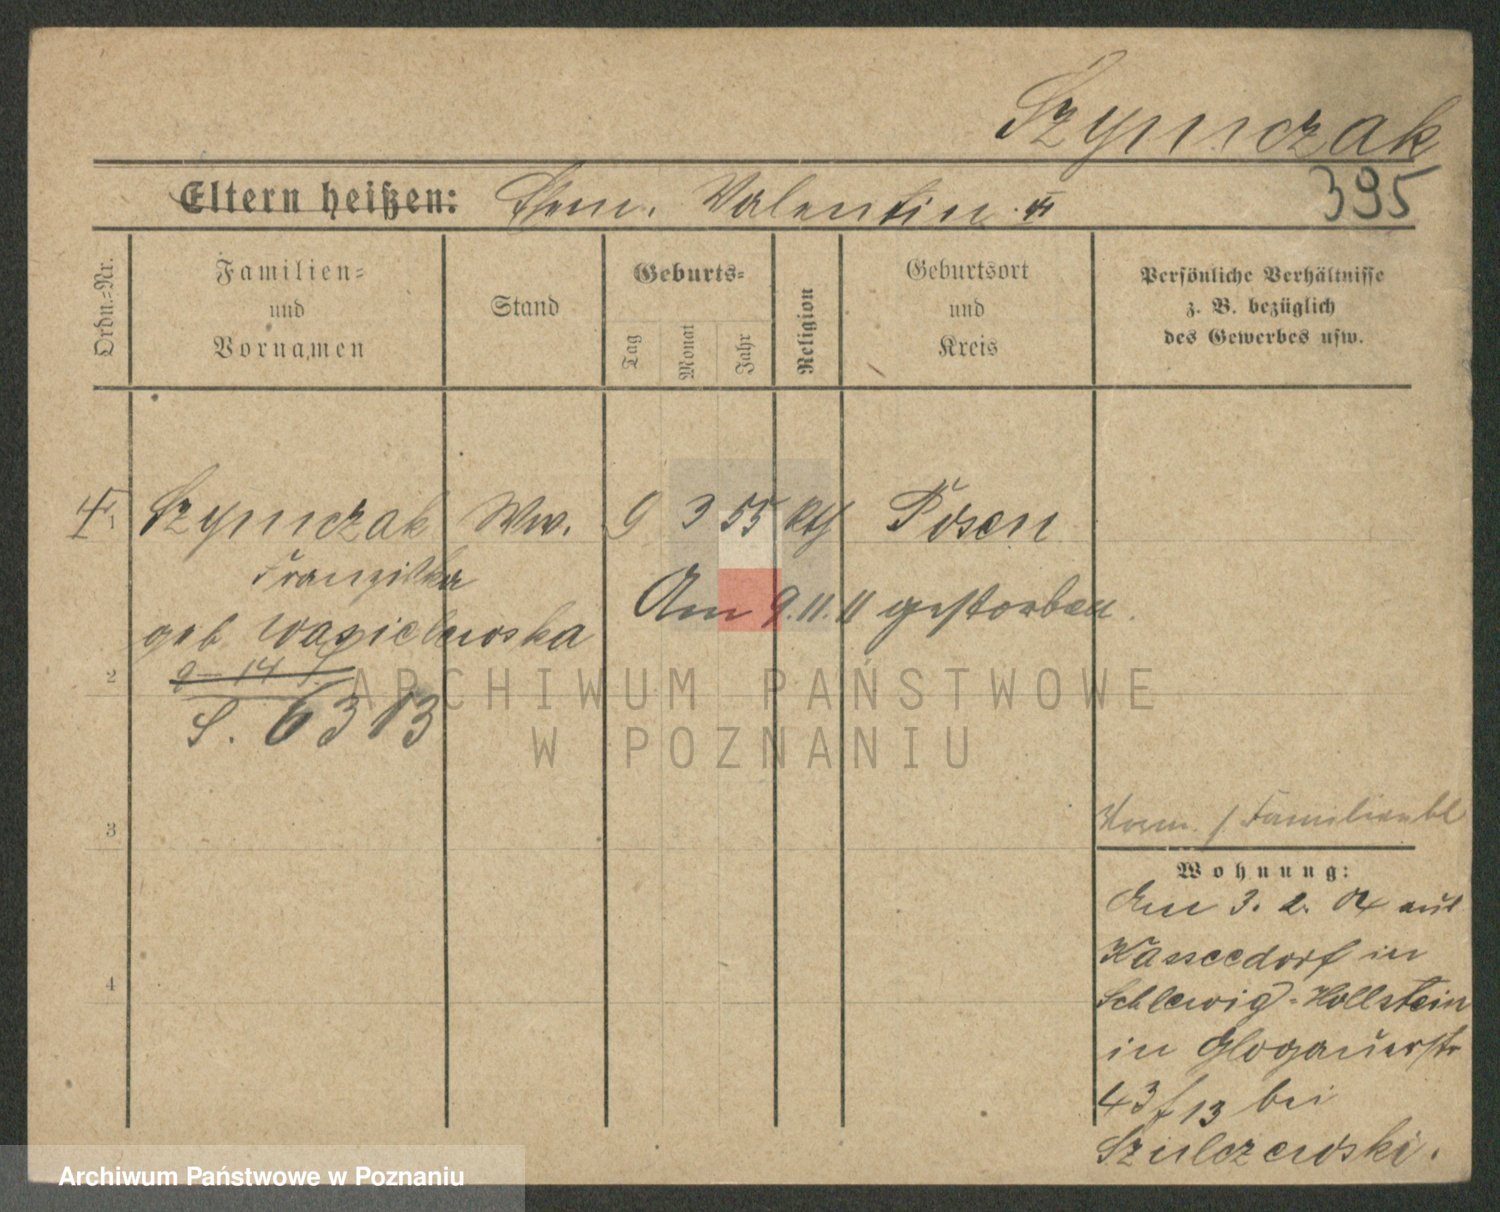 Szymczak
Eltern heißen: Ehem. Valentin
395
Ordn.-Nr.
Familien-
und
Vornamen
Stand
Geburts-
Tag
Monat
Jahr
Religion
Geburtsort
und
Kreis
Persönliche Verhältnisse
z. B. bezüglich
des Gewerbes usw.
1
Szymczak Ww. 9 3 55 kth Posen
Franziska
Am 9.11.11 gestorben.
geb.
9-14
2
S. 6313
ARCHIWUM PAŃSTWOWE
W POZNANIU
3
Familienbl
Wohnung:
Am 3. 2. 04 aus
Kasseedorf in
Schlewig-Hollstein
in Glogauerstr
4
43f 13 bei
Szulczewski.
Archiwum Państwowe w Poznaniu